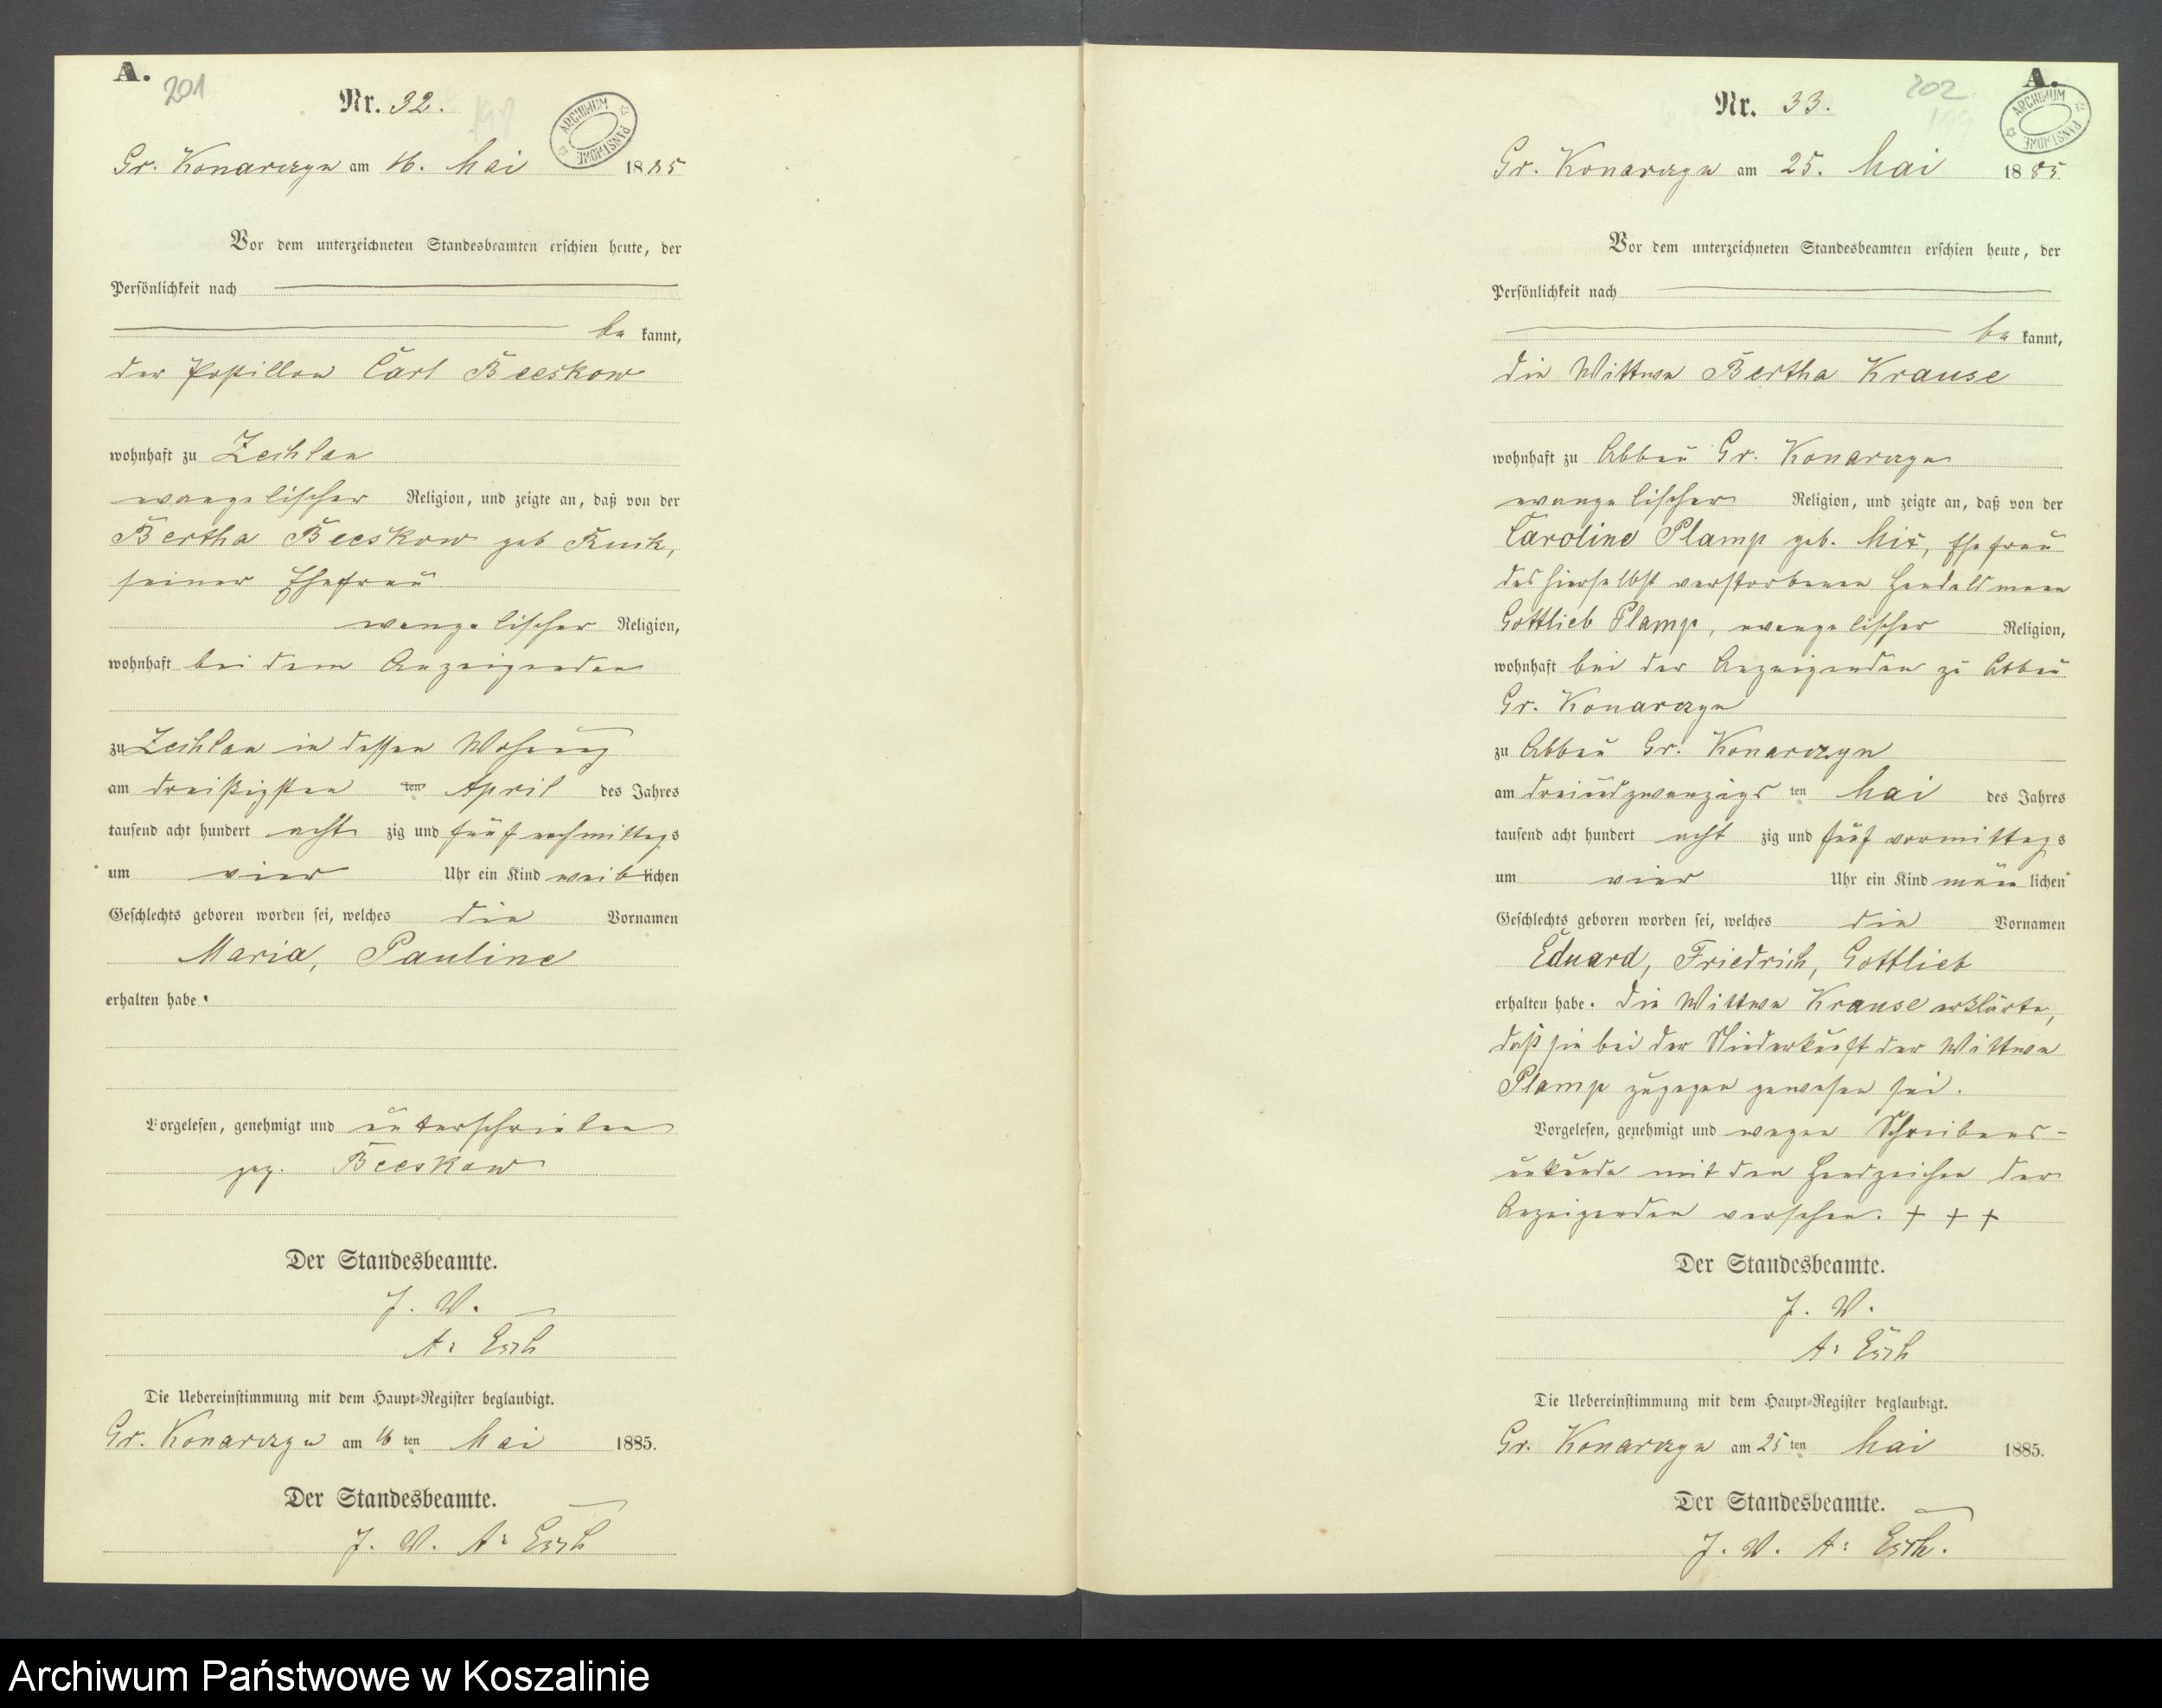 A.
201
Nr. 32.
ARCHIWUM PAŃSTWOWE
Gr. Konarczyn am 16. Mai 1885
Vor dem unterzeichneten Standesbeamten erschien heute, der
Persönlichkeit nach
be kannt,
der Postillon Carl Beeskow
wohnhaft zu Zechlau
evangelischer Religion, und zeigte an, daß von der
Bertha Beeskow geb
seiner Ehefrau
evangelischer Religion,
wohnhaft bei dem Anzeigenden
zu Zechlau in dessen Wohnung
am dreißigsten ten April des Jahres
tausend acht hundert acht zig und fünf nachmittags
um vier Uhr ein Kind weiblichen
Geschlechts geboren worden sei, welches die Vornamen
Maria, Pauline
erhalten habe.
Vorgelesen, genehmigt und unterschrieben
gez. Beeskow
Der Standesbeamte.
J. V.
A: Esch
Die Uebereinstimmung mit dem Haupt-Register beglaubigt.
Gr. Konarczyn am 16 ten Mai 1885.
Der Standesbeamte.
J. V. A: Esch
A.
202
Nr. 33.
ARCHIWUM PAŃSTWOWE
Gr. Konarczyn am 25. Mai 1885
Vor dem unterzeichneten Standesbeamten erschien heute, der
Persönlichkeit nach
be kannt,
die Wittwe Bertha Krause
wohnhaft zu Abbau Gr. Konarczyn
evangelischer Religion, und zeigte an, daß von der
Caroline Plamp geb. Mix, Ehefrau
des hierselbst verstorbenen Handelsmann
Gottlieb Plamp, evangelischer Religion,
wohnhaft bei der Anzeigenden zu Abbau
Gr. Konarczyn
zu Abbau Gr. Konarczyn
am dreiundzwanzigs ten Mai des Jahres
tausend acht hundert acht zig und fünf vormittags
um vier Uhr ein Kind männlichen
Geschlechts geboren worden sei, welches die Vornamen
Eduard, Friedrich, Gottlieb
erhalten habe. Die Wittwe Krause erklärte,
daß sie bei der Niederkunft der Wittwe
Plamp zugegen gewesen sei.
Vorgelesen, genehmigt und wegen Schreibens-
unkunde mit den Handzeichen der
Anzeigenden versehen. + + +
Der Standesbeamte.
J. V.
A: Esch
Die Uebereinstimmung mit dem Haupt-Register beglaubigt.
Gr. Konarczyn am 25 ten Mai 1885.
Der Standesbeamte.
J. V. A: Esch.
Archiwum Państwowe w Koszalinie